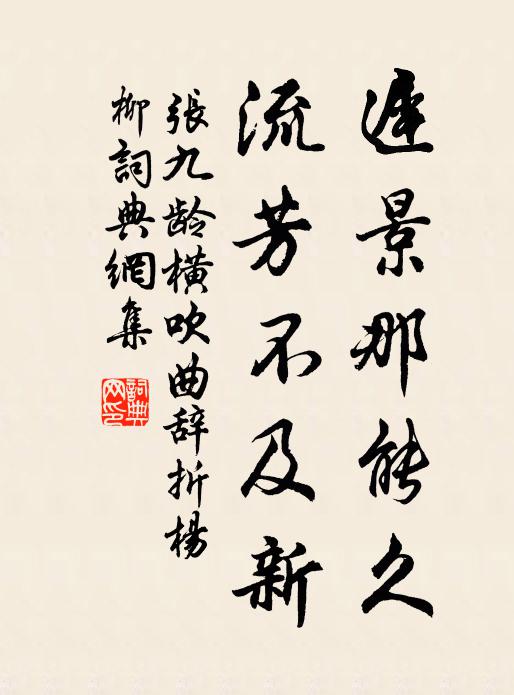 遲景那能久
流芳不及新
張九龄橫吹曲辞折楊
柳詞典網集
詞典
网印